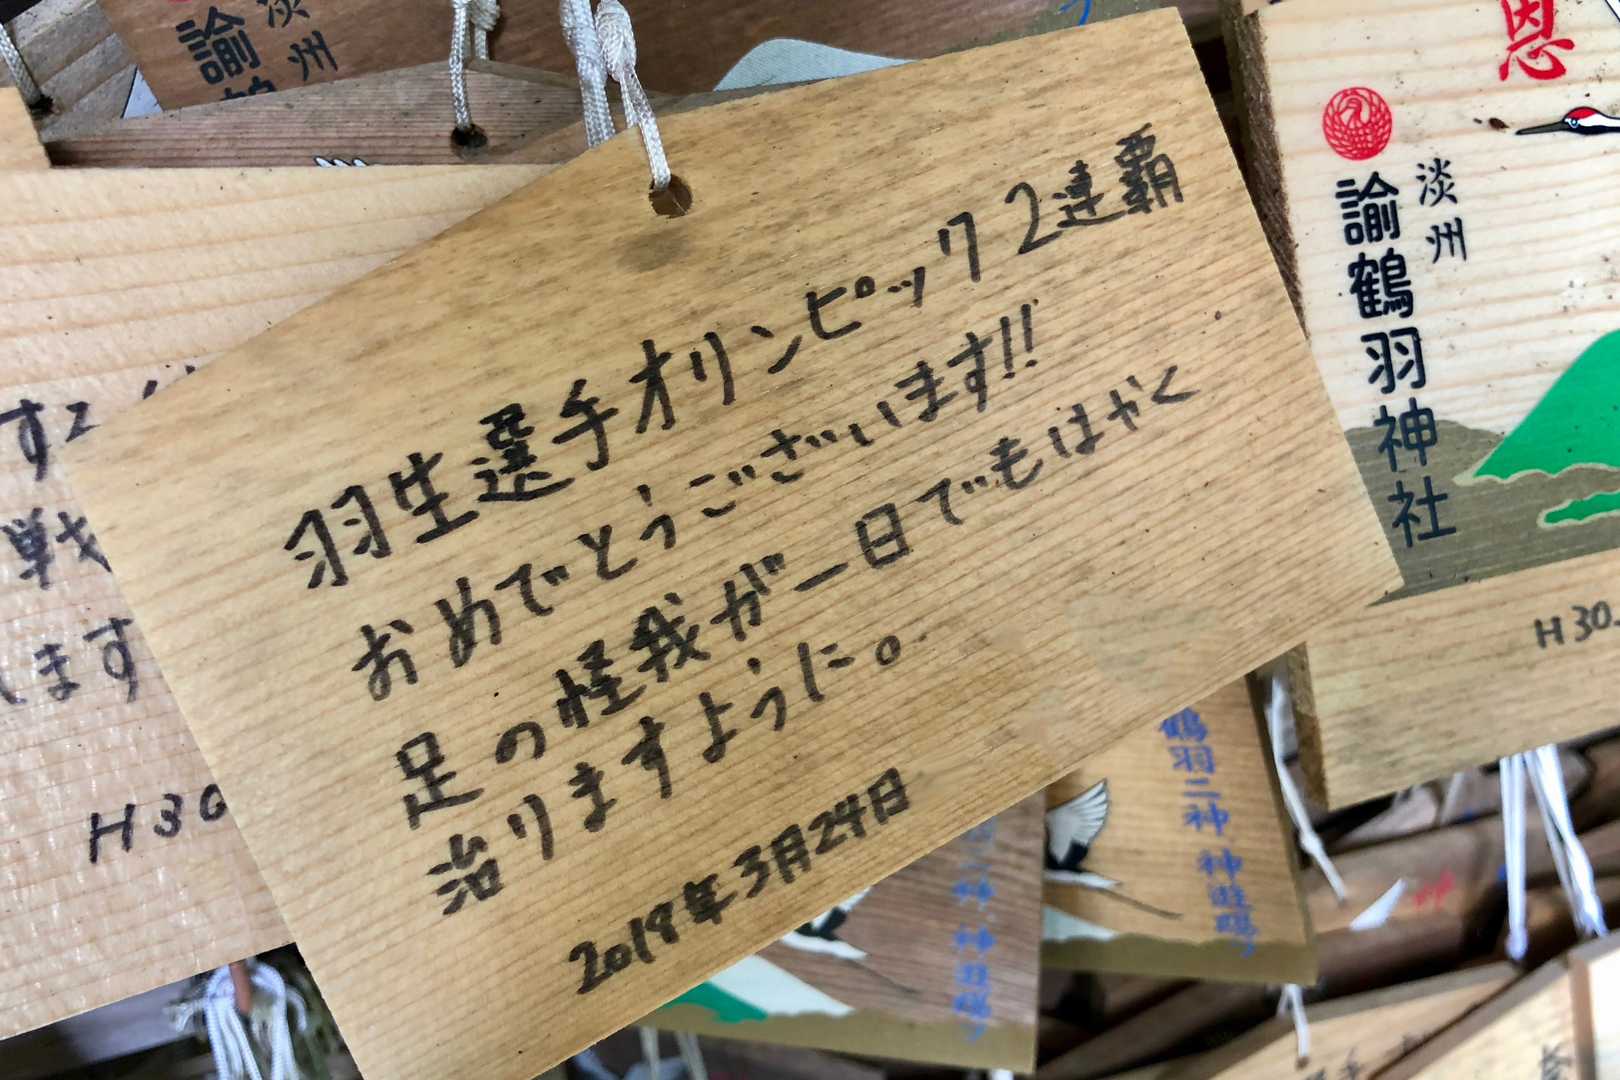 羽生選手オリンピック2連覇
おめでとうございます!!
足の怪我が一日でもはやく
治りますように。
2018年3月24日
淡州
諭鶴羽神社
恩
H30.
淡州
諭
すえ
戦
します
H30
鶴羽二神 神遊賜フ
神遊